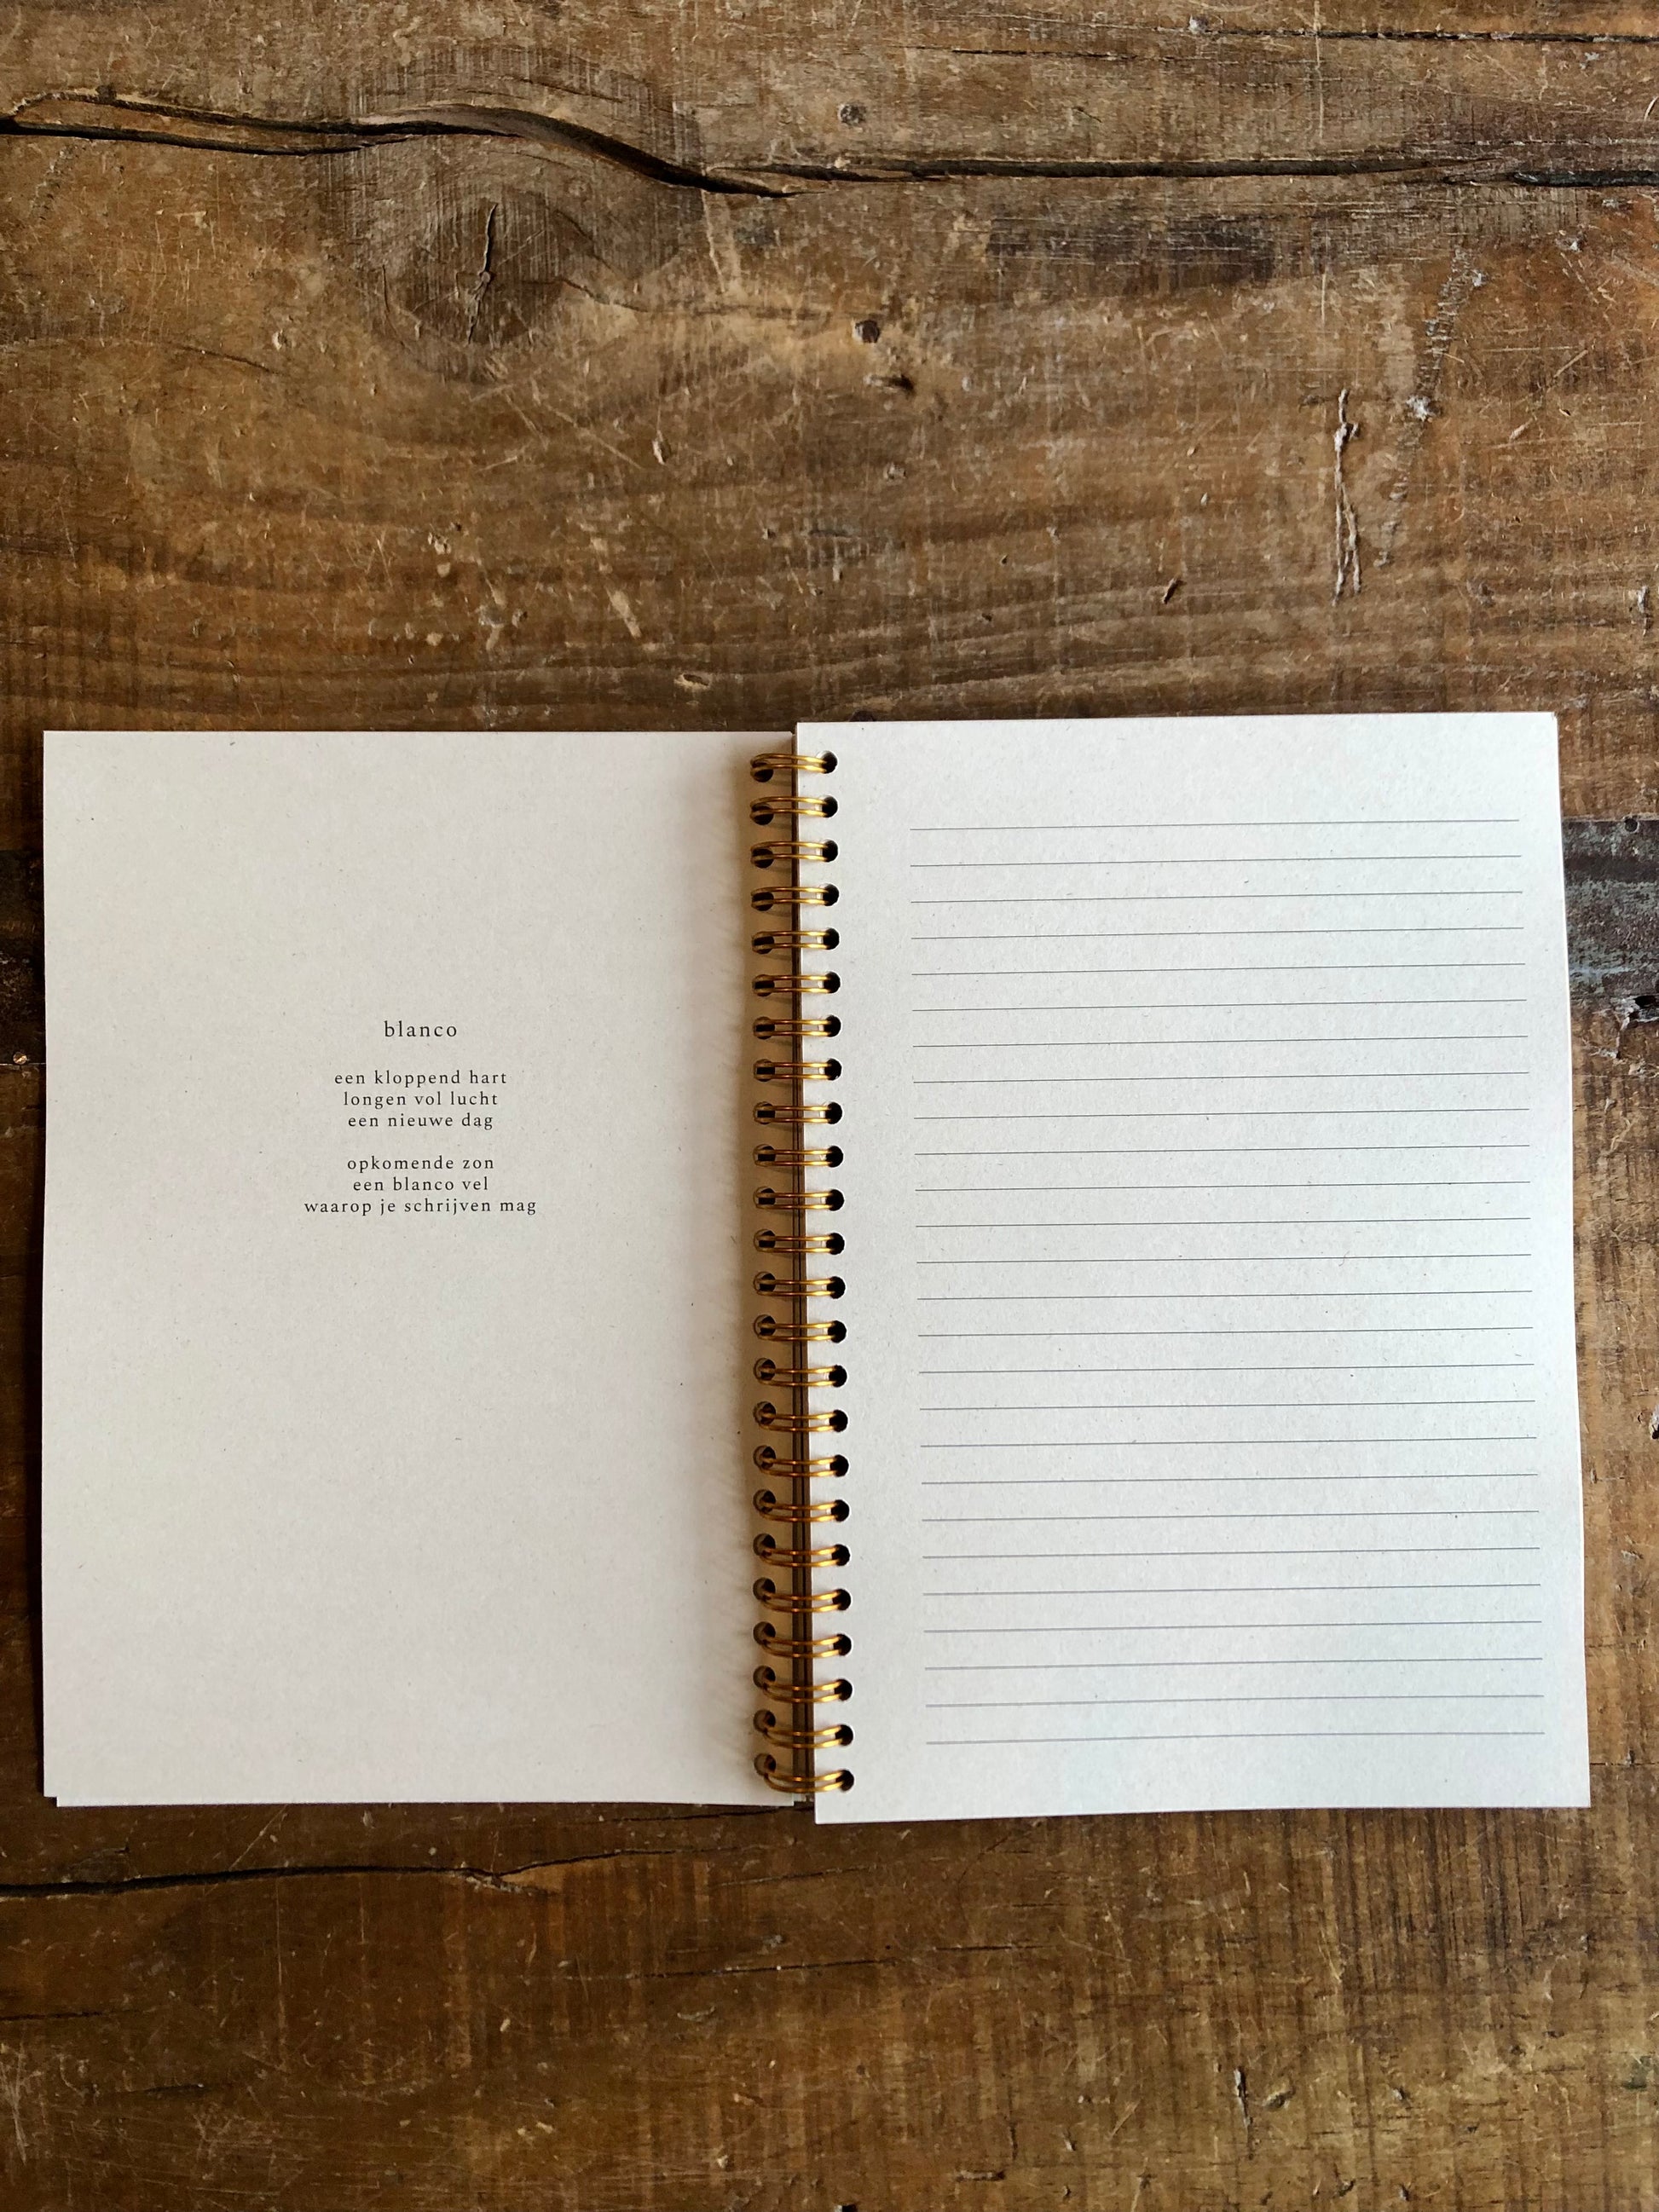 blanco
een kloppend hart
longen vol lucht
een nieuwe dag
opkomende zon
een blanco vel
waarop je schrijven mag